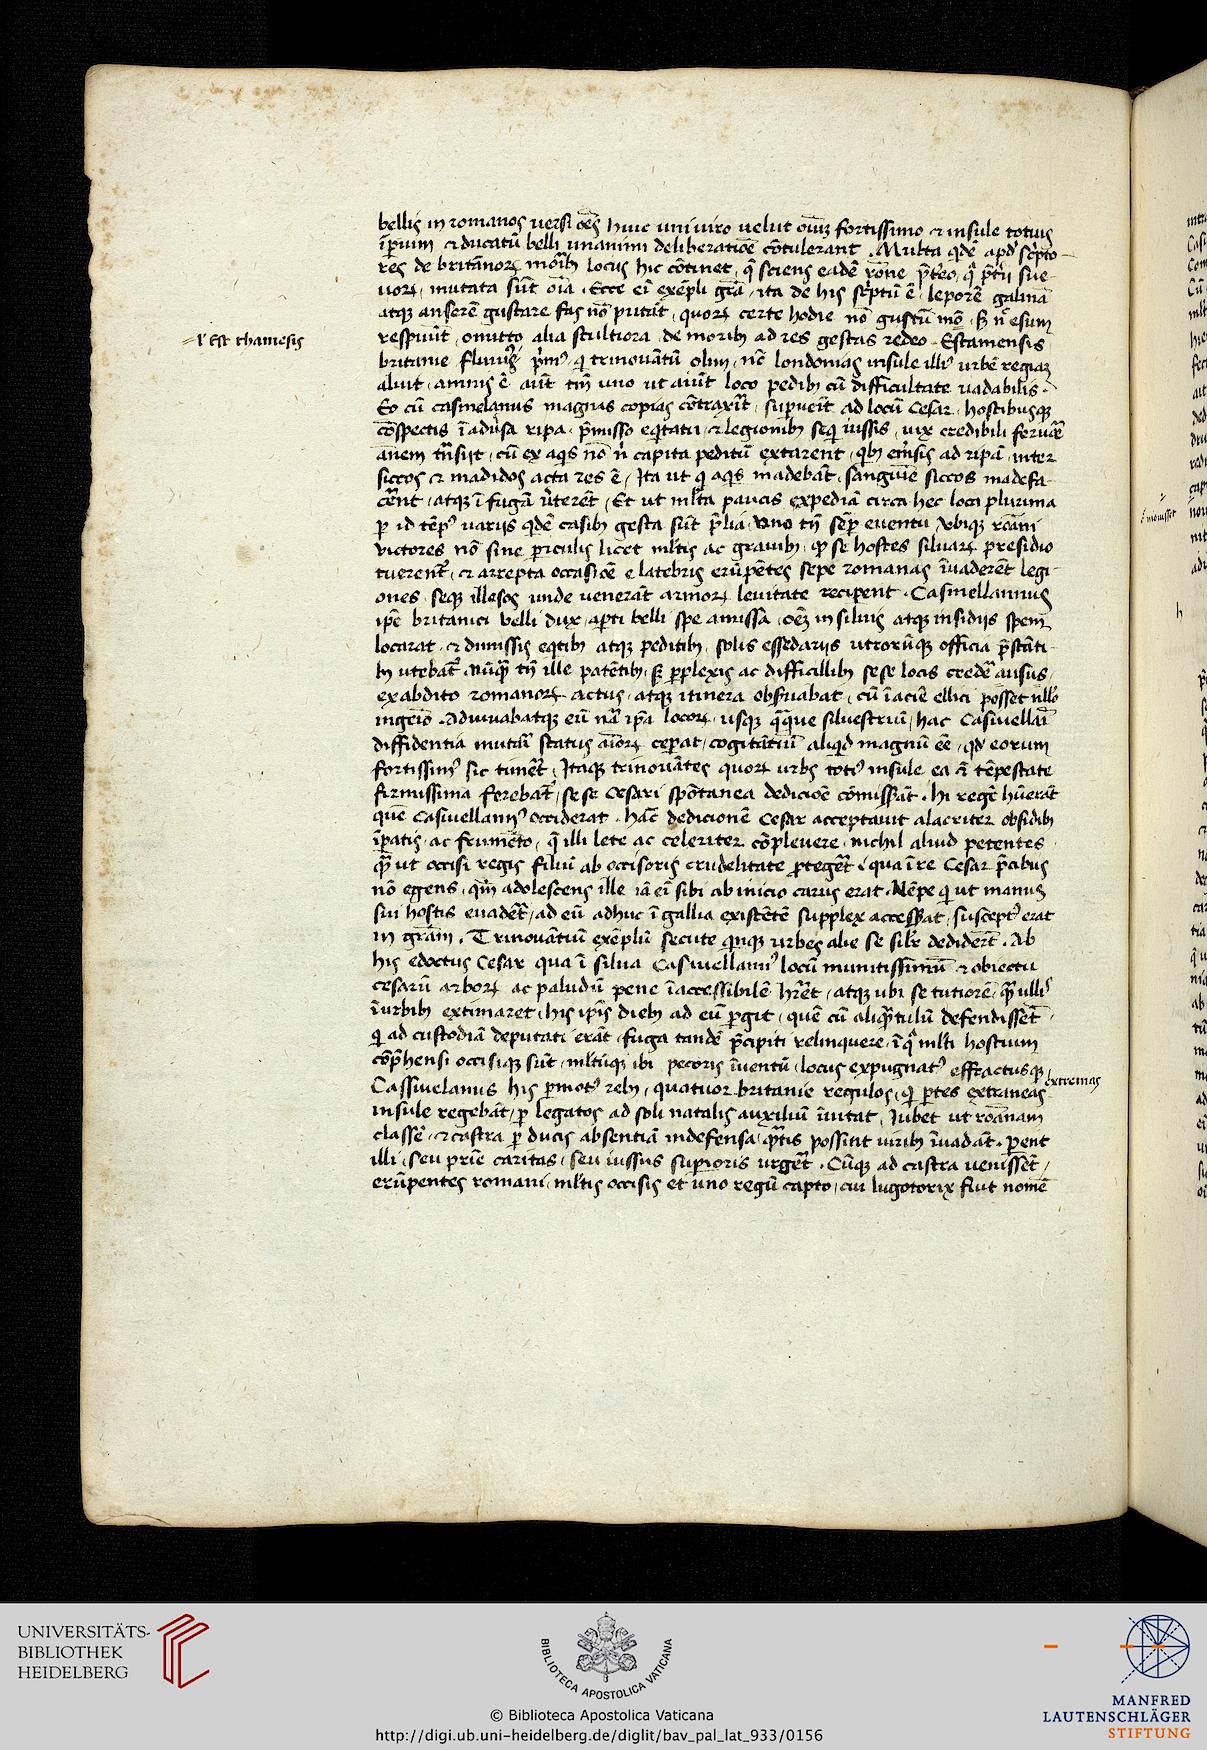 bellis in romanos versi oēs huic uni viro velut oīuꝫ fortissimo ⁊ insule totius
īperium ⁊ ducatū belli unanimi deliberatiōe cōtulerant . Multa qdē apd' scpto
res de britānoꝝ moribꝫ locus hic cōtinet , q̄ sciens eadē rōne p̄tereo , q̄ p̄terii sue
uoꝝ , mutata sūt oīa . Ecce eī exēpli grā , ita de his scptū ē . leporē galinā
atqꝫ anserē gustare fas nō putāt , quoꝝ certe hodie nō gustū mō , sꝫ nec esum
respuūt , omitto alia stultiora , de moribꝫ ad res gestas redeo . Est amensis
l' Est thamesis
britanie fluuius , p̄mꝰ , q trinouātū olim , nūc londonias insule illiꝰ urbē regiaꝫ
aluit , amnis ē aūt tm̄ uno ut aiūt loco pedibꝫ cū difficultate uadabilis .
Eo cū casiuelanus magnas copias cōtraxīt , supuenit ad locū Cesar , hostibusqꝫ
cōspectis ī adūsa ripa , p̄misso eqtatu , ⁊ legionibꝫ seq iussis , uix credibili feruore
amnem trāsiit , cū ex aqis nō nī capita peditū extarent , qbꝫ emersis ad ripā , inter
siccos ⁊ madidos acta res ē , Ita ut q aqis madebāt , sanguīe siccos madefa
cerent , atqꝫ ī fugā ūterēt , Et ut mlta paucis expediā circa hec loca plurima
ꝑ id tēpꝰ uarijs qdē casibꝫ gesta sūt p̄lia . Vno tn̄ sēꝑ euentu . Vbiqꝫ rōani
victores nō sine ꝑiculis licet mltis ac grauibꝫ , qꝫ se hostes siluaꝝ presidio
tuerent , ⁊ arrepta occasiōe e latebris erūpētes sepe romanas īuaderēt legi
ones , seqꝫ illesos unde uenerāt armoꝝ leuitate reciperent . Casiuellannus
ipē britanici belli dux , aperti belli spe amissa , oēꝫ in siluis atqꝫ insidijs spem
locarat , ⁊ dimissis eqtibꝫ atqꝫ peditibꝫ , solis essedarijs utrorūqꝫ officia p̄stāti
bꝫ utebat . nūqꝫ tn̄ ille patētibꝫ , sꝫ ꝑplexis ac difficillibꝫ sese locis credē ausus ,
ex abdito romanoꝝ actus , atqꝫ itinera obseruabat , cū ī aciē ellici posset nullo
ingenio . Adiuuabatqꝫ eū nā ipā locoꝝ , usqꝫ quaqꝫ siluestriū , hac Casiuellani
diffidentia mutati status aīoꝝ ceperāt , cogitātiū aliqd magnū eē , qd' eorum
fortissimꝰ sic timēt , Itaqꝫ trinouātes quoꝝ urbs totiꝰ insule ea ī tēpestate
firmissima ferebat , sese Cesari spōtanea dediciōe cōmiserāt . hi regē huerāt
quē Casiuellannꝰ occiderat . hāc dedicionē Cesar acceptauit alacriter obsidibꝫ
īpatis , ac frumēto , q̄ illi lete ac celeriter cōpleuere . nichil aliud petentes
qꝫ ut occisi regis filiū ab occisoris crudelitate ꝓtegeret . qua ī re Cesar p̄cibus
nō egens , qm̄ adolescens ille iā eī sibi ab inicio carus erat . Nēpe q ut manus
sui hostis euaderet , ad eū adhuc ī gallia existētē supplex accesserat , susceptꝰ erat
in grām . Trinouātiū exēplū secute qnqꝫ urbes alie se silr dediderēt . Ab
his edoctus Cesar qua ī silua Casiuellannꝰ locū munitissimū ⁊ obiectu
cesarū arboꝝ ac paludū pene īaccessibilē hret , atqꝫ ubi se tutiorē , qꝫ ulliꝰ
ī urbibꝫ extimaret , his ipis diebꝫ ad eū ꝑgit , quē cū aliqꝫtulū defendissēt
q ad custodiā deputati erāt , fuga tandē p̄cipiti relinquere , ī qꝫ mlti hostium
cōp̄hensi occisiqꝫ sūt , mltūqꝫ ibi pecoris īuentū , locus expugnatꝰ effractusqꝫ
extremas
Cassiuelanus his ꝑmotꝰ rebꝫ , quatuor britanie regulos , q ꝑtes extraneas
insule regebāt , ꝑ legatos ad soli natalis auxiliū īuitat , Iubet ut rōanam
classē , ⁊ castra ꝑ ducis absentiā indefensa , qꝫtis possint uiribꝫ īuadāt . Parent
illi , seu prie caritas , seu iussus superioris urgēt . Cūqꝫ ad castra uenissēt ,
erūpentes romani , mltis occisis et uno regū capto , cui lugotorix fuit nomē
= monisset
UNIVERSITÄTS-
BIBLIOTHEK
HEIDELBERG
BIBLIOTECA APOSTOLICA VATICANA
© Biblioteca Apostolica Vaticana
http://digi.ub.uni-heidelberg.de/diglit/bav_pal_lat_933/0156
MANFRED
LAUTENSCHLÄGER
STIFTUNG